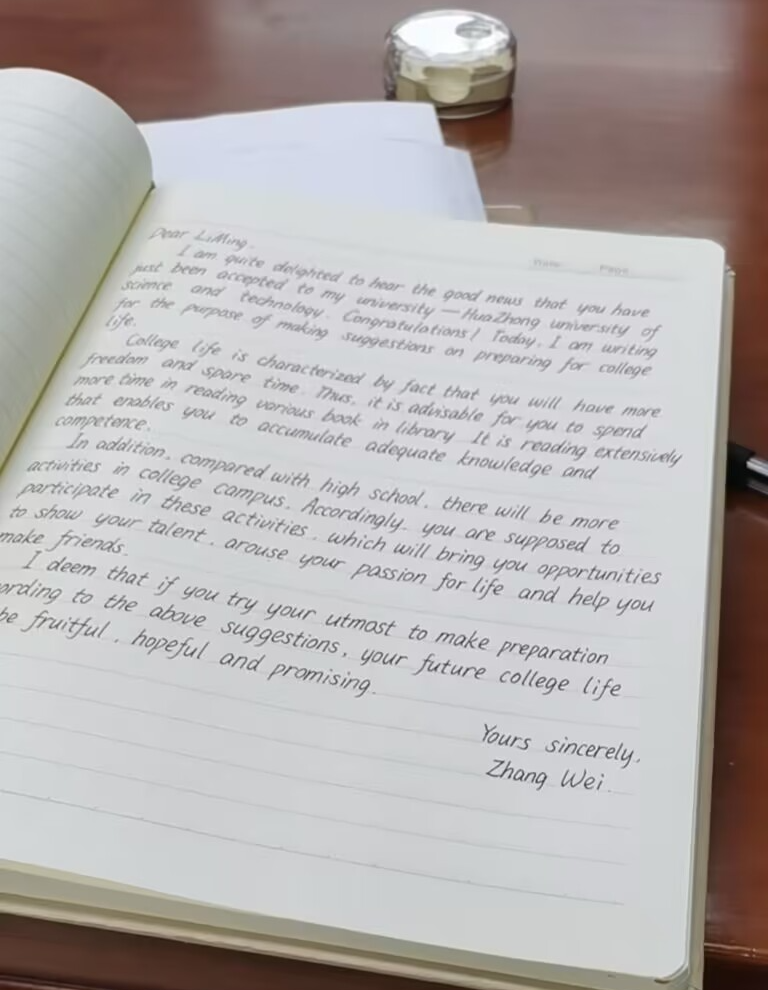 Date Page
Dear LiMing,
I am quite delighted to hear the good news that you have
just been accepted to my university — HuaZhong university of
science and technology. Congratulations! Today, I am writing
for the purpose of making suggestions on preparing for college
life.
College life is characterized by fact that you will have more
freedom and spare time. Thus, it is advisable for you to spend
more time in reading various book in library. It is reading extensively
that enables you to accumulate adequate knowledge and
competence.
In addition, compared with high school, there will be more
activities in college campus. Accordingly, you are supposed to
participate in these activities, which will bring you opportunities
to show your talent, arouse your passion for life and help you
make friends.
I deem that if you try your utmost to make preparation
ording to the above suggestions, your future college life
be fruitful, hopeful and promising.
Yours sincerely,
Zhang Wei.